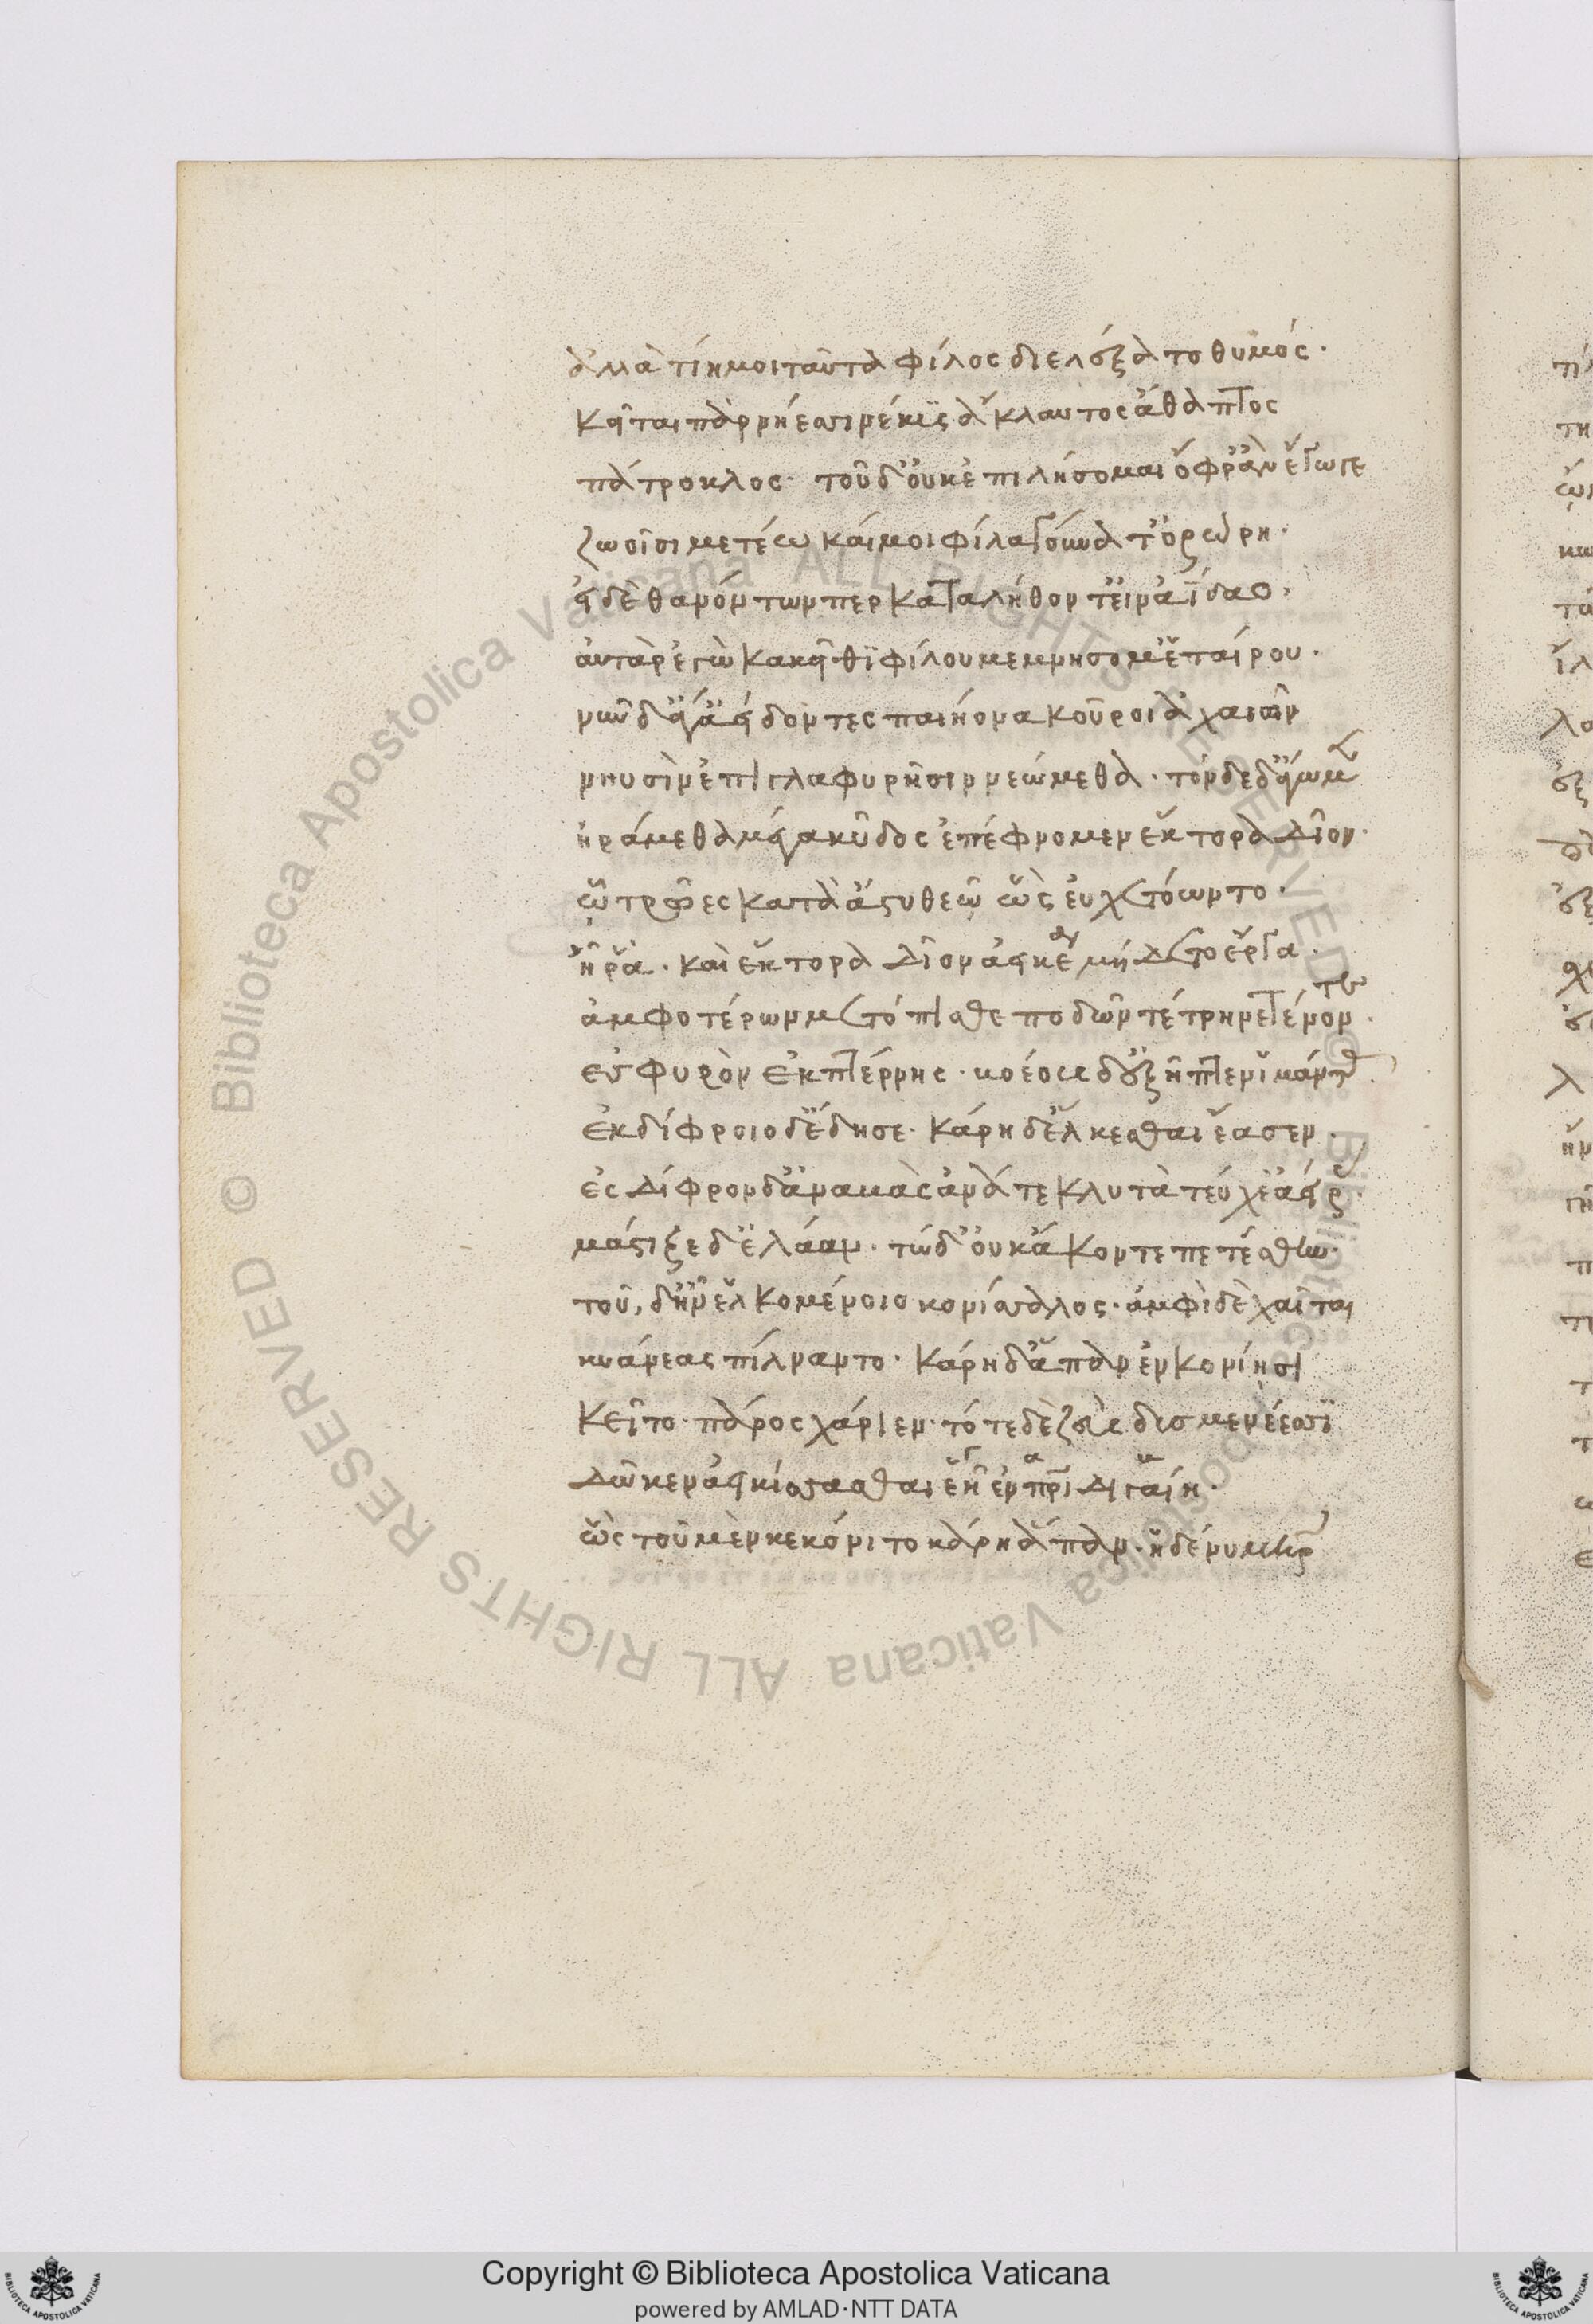 ἀλλὰ τίη μοι ταῦτα φίλος διελέξατο θυμός·
κεῖται πὰρ νήεσσι νέκυς ἄκλαυτος ἄθαπτος
πάτροκλος· τοῦ δ' οὐκ ἐπιλήσομαι ὄφρ' ἂν ἔγωγε
ζωοῖσι μετέω καί μοι φίλα γούνατ' ὀρώρη·
εἰ δὲ θανόντων περ καταλήθοντ' εἰν ἀΐδαο·
αὐτὰρ ἐγὼ κακεῖθι φίλου μεμνήσομ' ἑταίρου·
νῦν δ' ἄγ' ἀείδοντες παιήονα κοῦροι ἀχαιῶν
νηυσὶν ἐπὶ γλαφυρῆσιν νεώμεθα· τόνδε δ' ἄγωμεν
ἠράμεθα μέγα κῦδος ἐπέφνομεν ἕκτορα δῖον·
ᾧ τρῶες κατὰ ἄστυ θεῷ ὣς εὐχετόωντο·
ἦ ῥα· καὶ ἕκτορα δῖον ἀεικέα μήδετο ἔργα·
ἀμφοτέρων μετόπισθε ποδῶν τέτρηνε τένοντε
ἐς σφυρὸν ἐκ πτέρνης· βοέους δ' ἐξῆπτεν ἱμάντας·
ἐκ δίφροιο δ' ἔδησε· κάρη δ' ἕλκεσθαι ἔασεν·
ἐς δίφρον δ' ἀναβὰς ἀνά τε κλυτὰ τεύχε' ἀείρας·
μάστιξε δ' ἐλάαν· τὼ δ' οὐκ ἄκοντε πετέσθην·
τοῦ, δ' ἦν ἑλκομένοιο κονίσαλος· ἀμφὶ δὲ χαῖται
κυάνεαι πίλναντο· κάρη δ' ἅπαν ἐν κονίησι
κεῖτο· πάρος χάριεν· τότε δὲ ζεὺς δυσμενέεσσι
δῶκεν ἀεικίσσασθαι ἑῇ ἐν πατρίδι γαίη·
ὣς τοῦ μὲν κεκόνιτο κάρη ἅπαν· ἡ δέ νυ μήτηρ
Copyright © Biblioteca Apostolica Vaticana
powered by AMLAD·NTT DATA